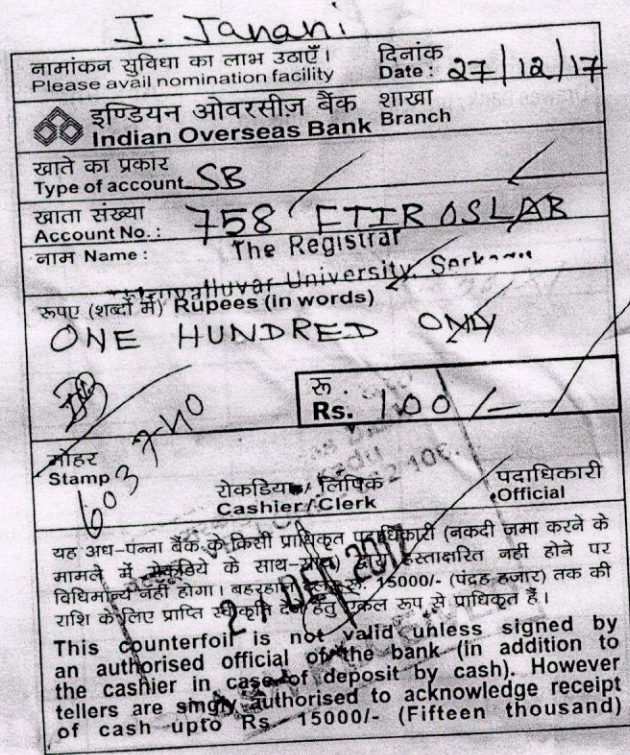 J. Janani
नामांकन सुविधा का लाभ उठाएँ।
Please avail nomination facility
दिनांक
Date: 27/12/17
इण्डियन ओवरसीज़ बैंक
Indian Overseas Bank
शाखा
Branch
खाते का प्रकार
Type of account SB
खाता संख्या
Account No.: 758 FTIR OSLAB
नाम Name: The Registrar
University,
रूपए (शब्दों में) Rupees (in words)
ONE HUNDRED ONLY
रू.
Rs. 100/-
603740
मोहर
Stamp
रोकडिया / लिपिक
Cashier / Clerk
पदाधिकारी
Official
यह अध-पन्ना बैंक के किसी प्राधिकृत पदाधिकारी (नकदी जमा करने के
मामले में रोकडिये के साथ-साथ) द्वारा हस्ताक्षरित नहीं होने पर
विधिमान्य नहीं होगा। 15000/- (पंद्रह हजार) तक की
राशि के लिए प्राप्ति स्वीकृति देने हेतु एकल रूप से प्राधिकृत हैं।
This counterfoil is not valid unless signed by
an authorised official of the bank (in addition to
the cashier in case of deposit by cash). However
tellers are singly authorised to acknowledge receipt
of cash upto Rs 15000/- (Fifteen thousand)